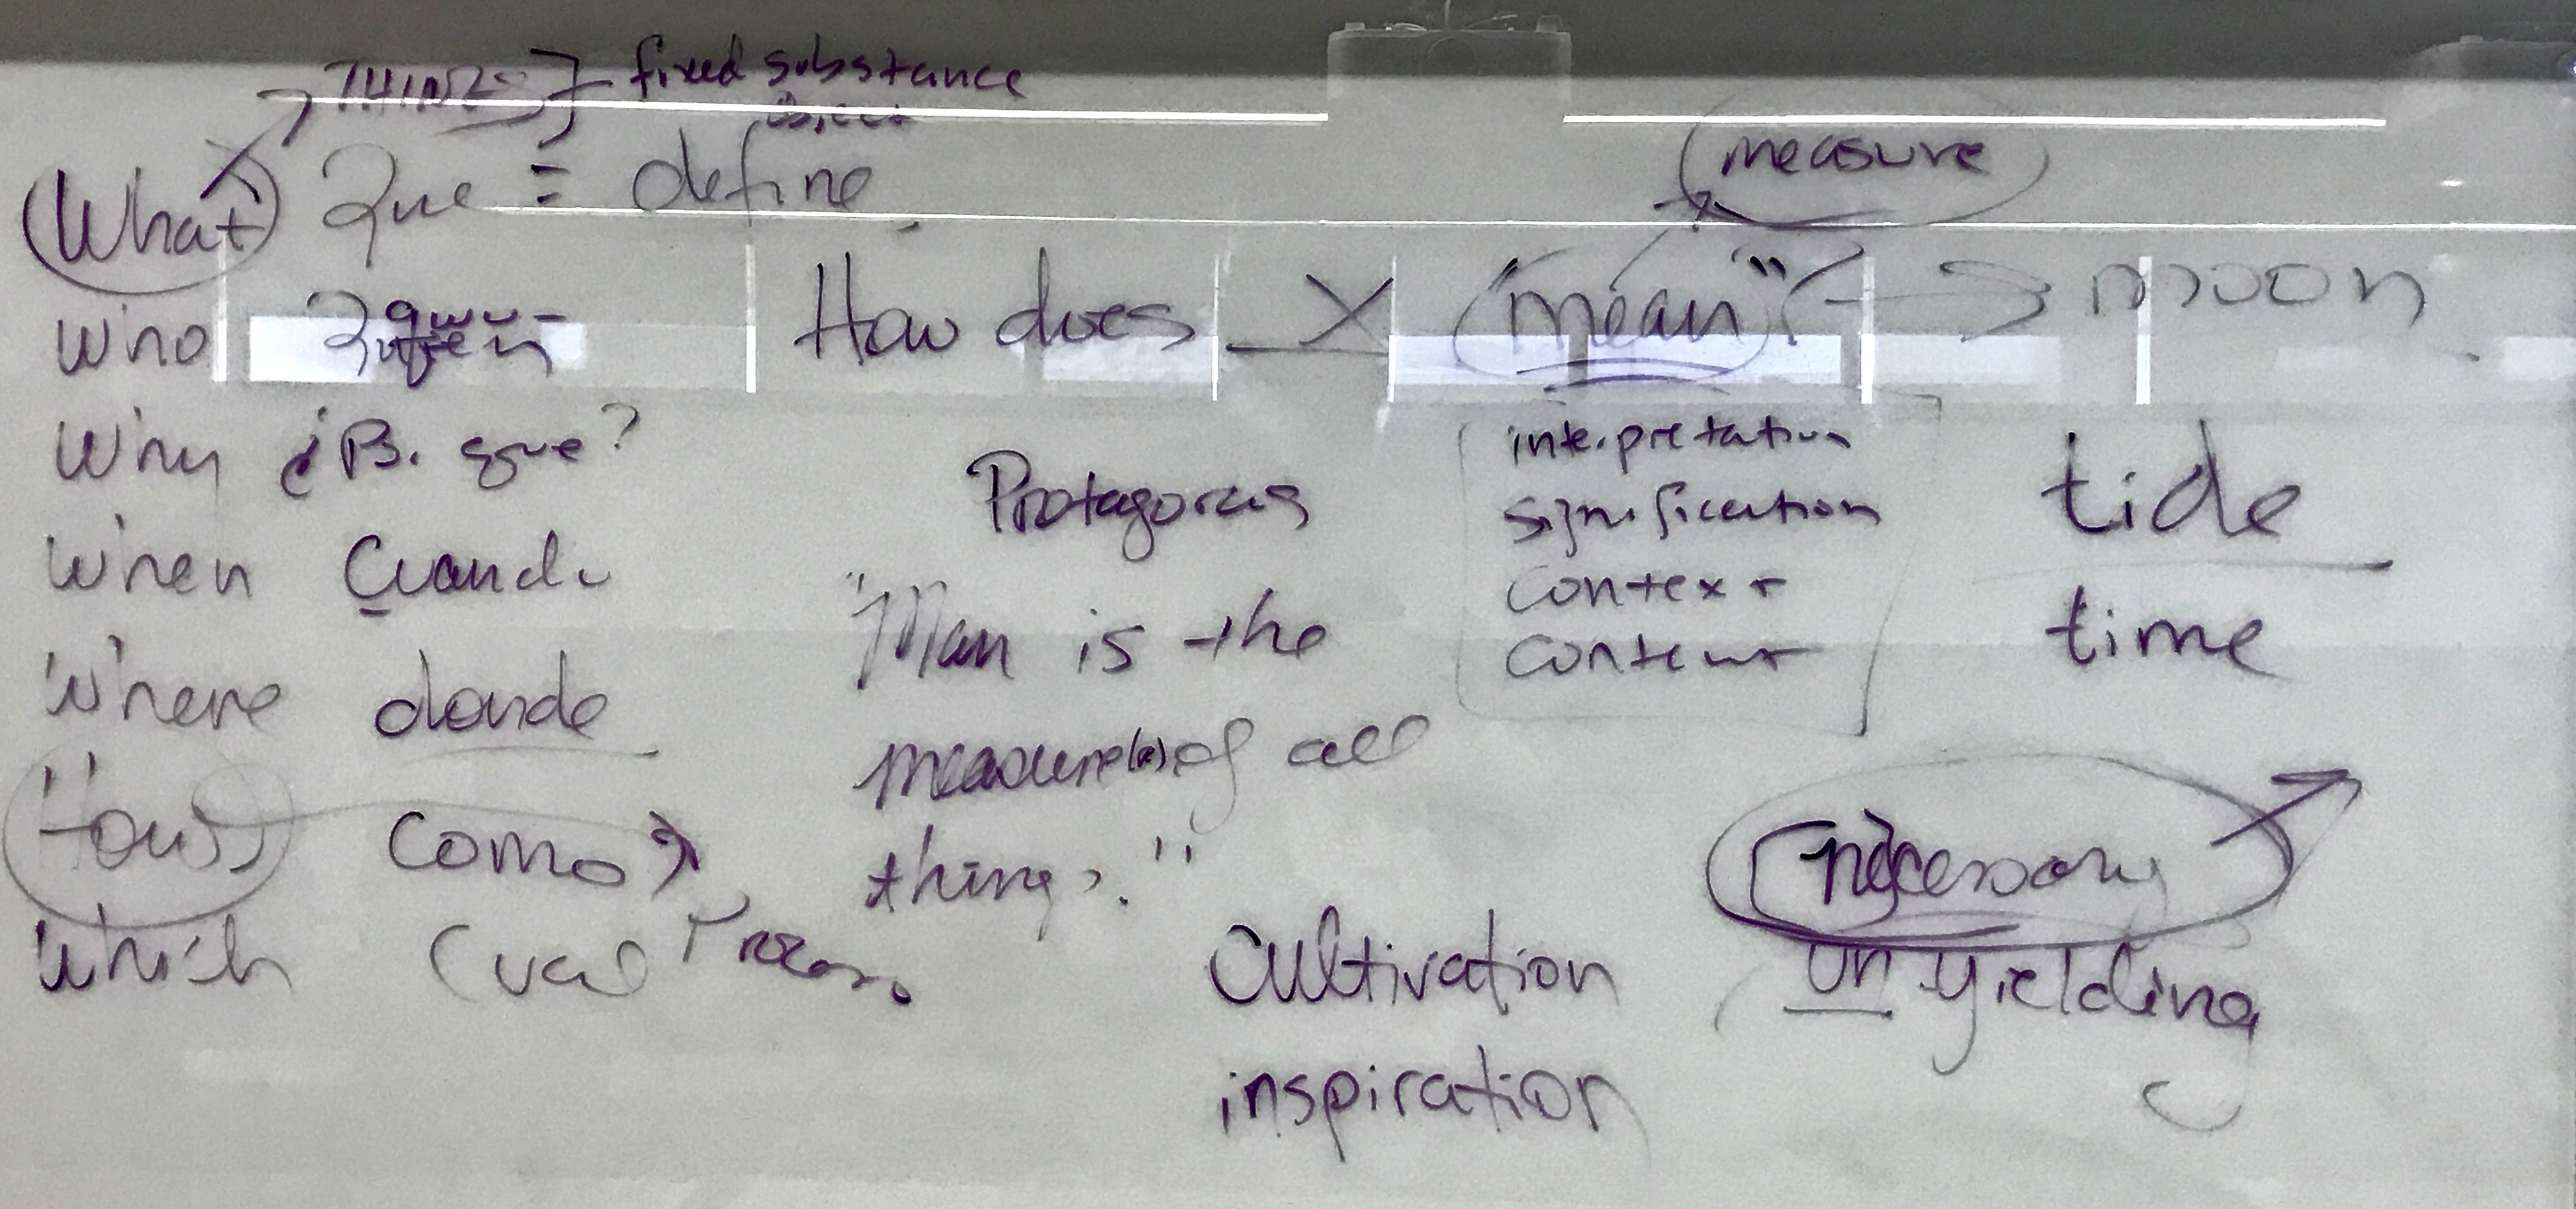 THINGS } fixed substance
object
What Que = define
measure
Who quien
How does X "mean"? → moon
Why ¿Por que?
interpretation
signification
context
content
Protagoras
tide
time
When Cuando
"Man is the
measure(s) of all
things."
Where donde
How como
Process
Which Cual
necessary
unyielding
Cultivation
inspiration